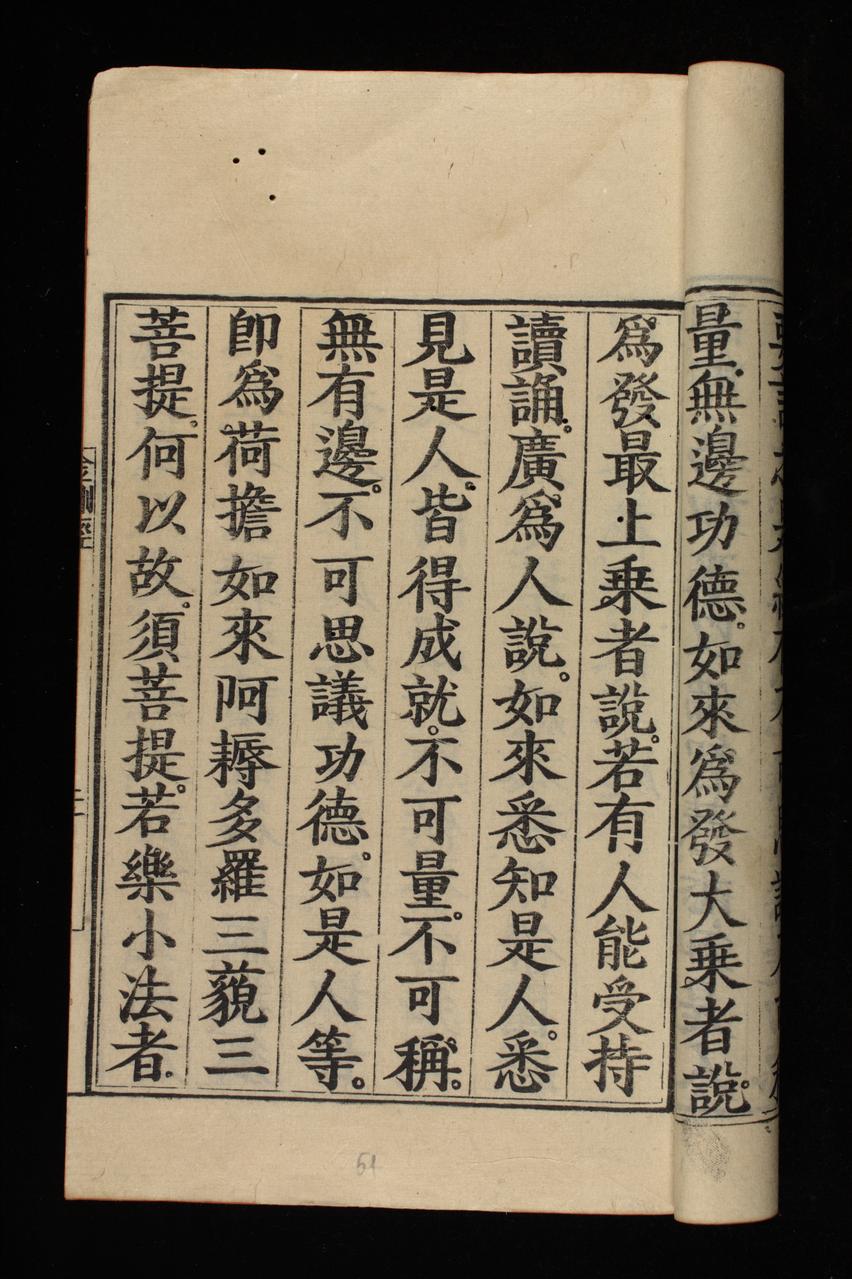 量。無邊功德。如來爲發大乘者說。
爲發最上乘者說。若有人能受持
讀誦。廣爲人說。如來悉知是人。悉
見是人。皆得成就。不可量。不可稱。
無有邊。不可思議功德。如是人等。
卽爲荷擔如來阿耨多羅三藐三
菩提。何以故。須菩提。若樂小法者.
金剛經
51